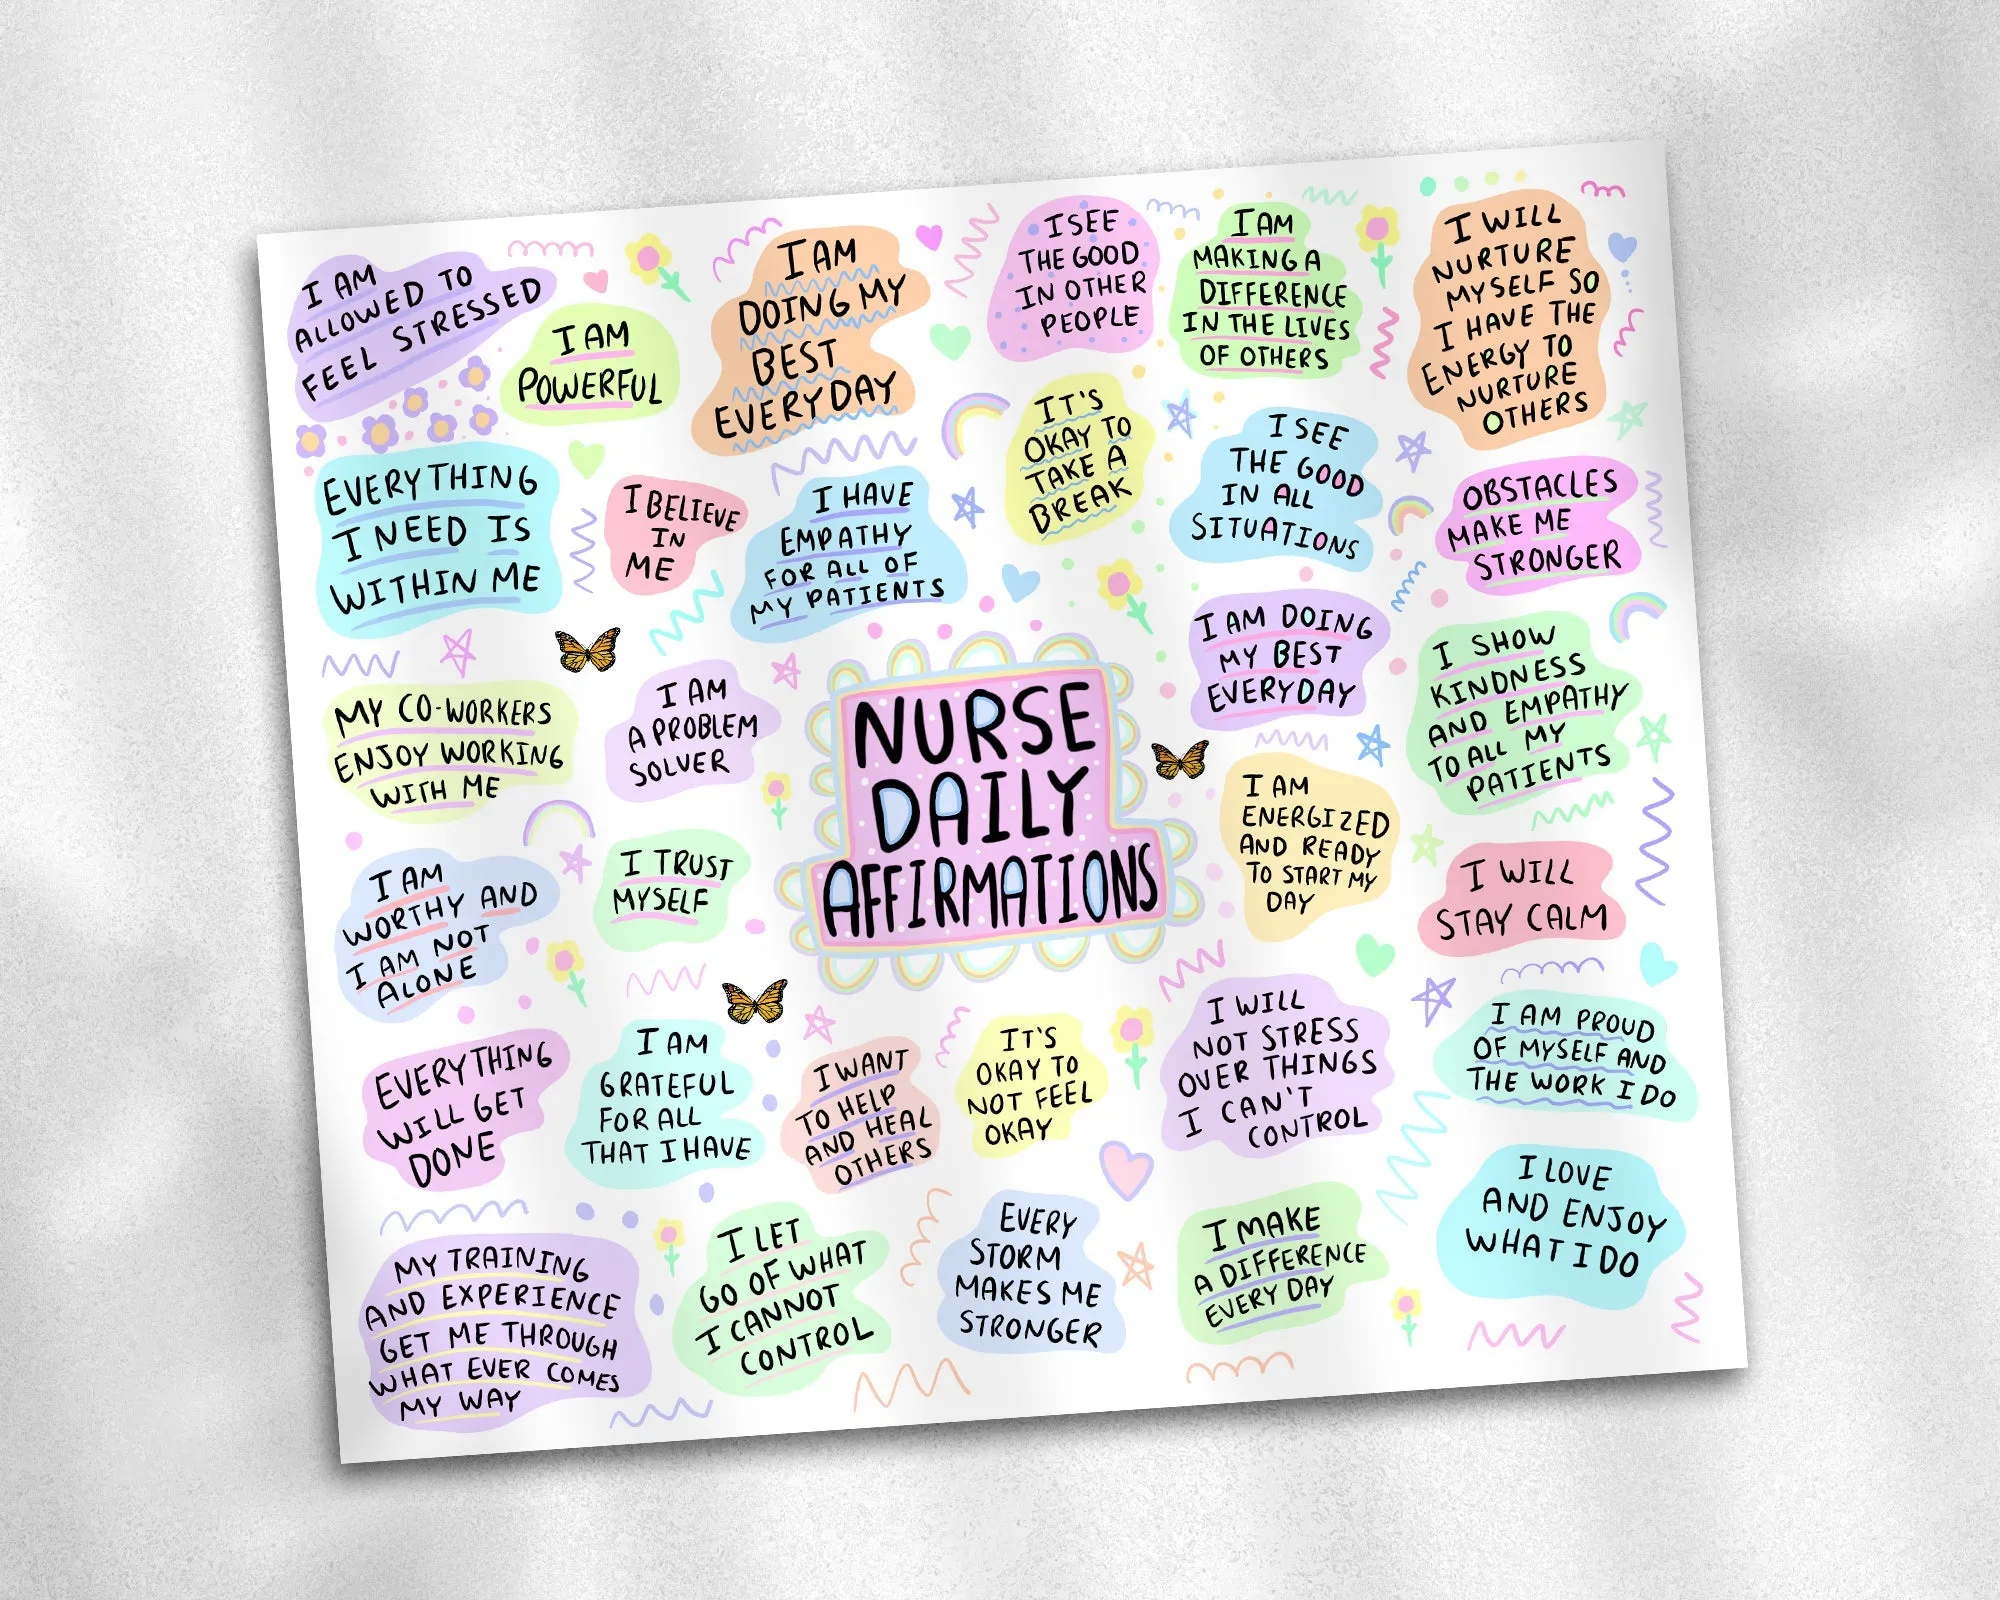 I AM
ALLOWED TO
FEEL STRESSED
I AM
POWERFUL
I AM
DOING MY
BEST
EVERYDAY
I SEE
THE GOOD
IN OTHER
PEOPLE
I AM
MAKING A
DIFFERENCE
IN THE LIVES
OF OTHERS
I WILL
NURTURE
MYSELF SO
I HAVE THE
ENERGY TO
NURTURE
OTHERS
EVERYTHING
I NEED IS
WITHIN ME
I BELIEVE
IN
ME
I HAVE
EMPATHY
FOR ALL OF
MY PATIENTS
IT'S
OKAY TO
TAKE A
BREAK
I SEE
THE GOOD
IN ALL
SITUATIONS
OBSTACLES
MAKE ME
STRONGER
MY CO-WORKERS
ENJOY WORKING
WITH ME
I AM
A PROBLEM
SOLVER
NURSE
DAILY
AFFIRMATIONS
I AM DOING
MY BEST
EVERYDAY
I SHOW
KINDNESS
AND EMPATHY
TO ALL MY
PATIENTS
I AM
WORTHY AND
I AM NOT
ALONE
I TRUST
MYSELF
I AM
ENERGIZED
AND READY
TO START MY
DAY
I WILL
STAY CALM
EVERYTHING
WILL GET
DONE
I AM
GRATEFUL
FOR ALL
THAT I HAVE
I WANT
TO HELP
AND HEAL
OTHERS
IT'S
OKAY TO
NOT FEEL
OKAY
I WILL
NOT STRESS
OVER THINGS
I CAN'T
CONTROL
I AM PROUD
OF MYSELF AND
THE WORK I DO
MY TRAINING
AND EXPERIENCE
GET ME THROUGH
WHAT EVER COMES
MY WAY
I LET
GO OF WHAT
I CANNOT
CONTROL
EVERY
STORM
MAKES ME
STRONGER
I MAKE
A DIFFERENCE
EVERY DAY
I LOVE
AND ENJOY
WHAT I DO